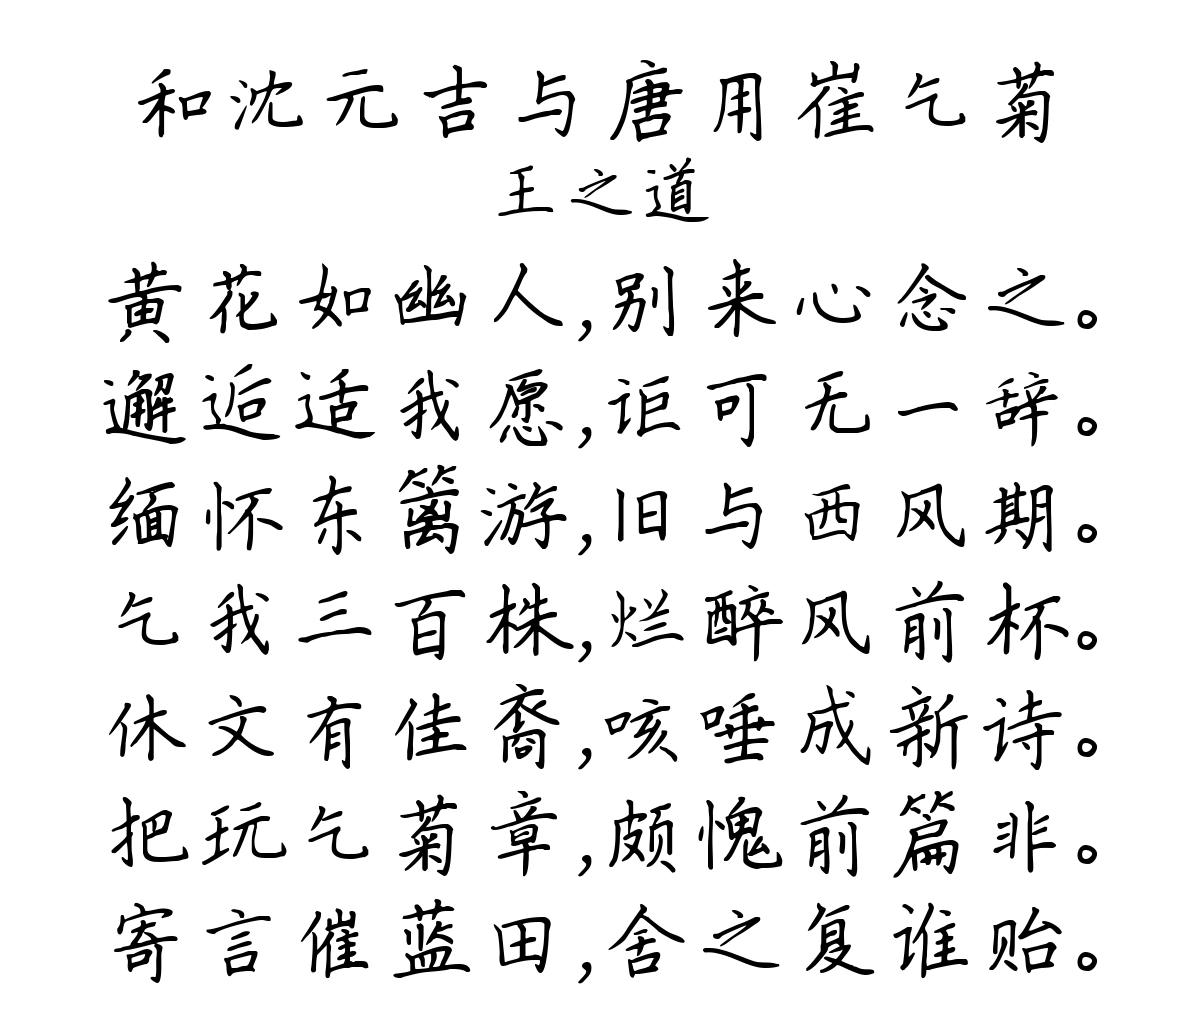 和沈元吉与唐用崔乞菊
王之道
黄花如幽人,别来心念之。
邂逅适我愿,讵可无一辞。
缅怀东篱游,旧与西风期。
乞我三百株,烂醉风前杯。
休文有佳裔,咳唾成新诗。
把玩乞菊章,颇愧前篇非。
寄言催蓝田,舍之复谁贻。